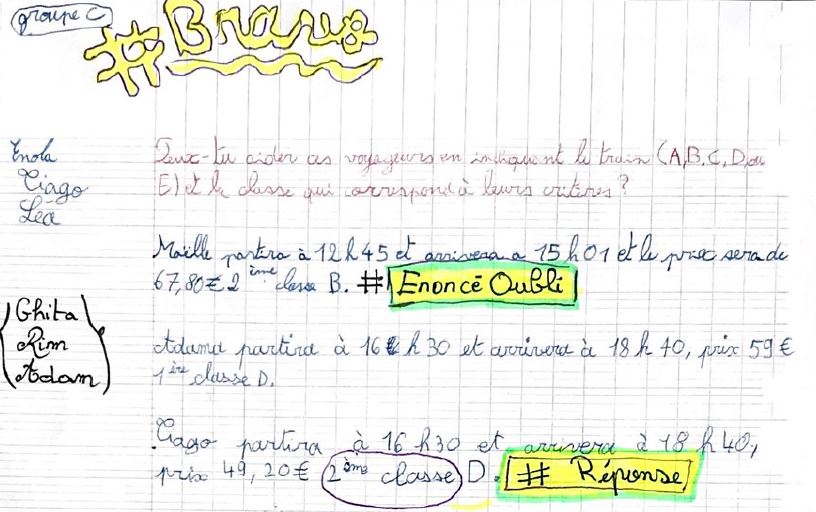 groupe C
#Bravo
Enola
Tiago
Léa
Peux-tu aider ces voyageurs en indiquant le train (A,B,C,D,ou
E) et la classe qui correspond à leurs critères ?
Maëlle partira à 12h45 et arrivera a 15h01 et le prix sera de
67,80€ 2ème classe B. # Enoncé Oubli
(Ghita
Rim
Adam)
Adama partira à 16h30 et arrivera à 18h40, prix 59€
1ère classe D.
Tiago partira à 16h30 et arrivera à 18h40,
prix 49,20€ 2ème classe D. # Réponse